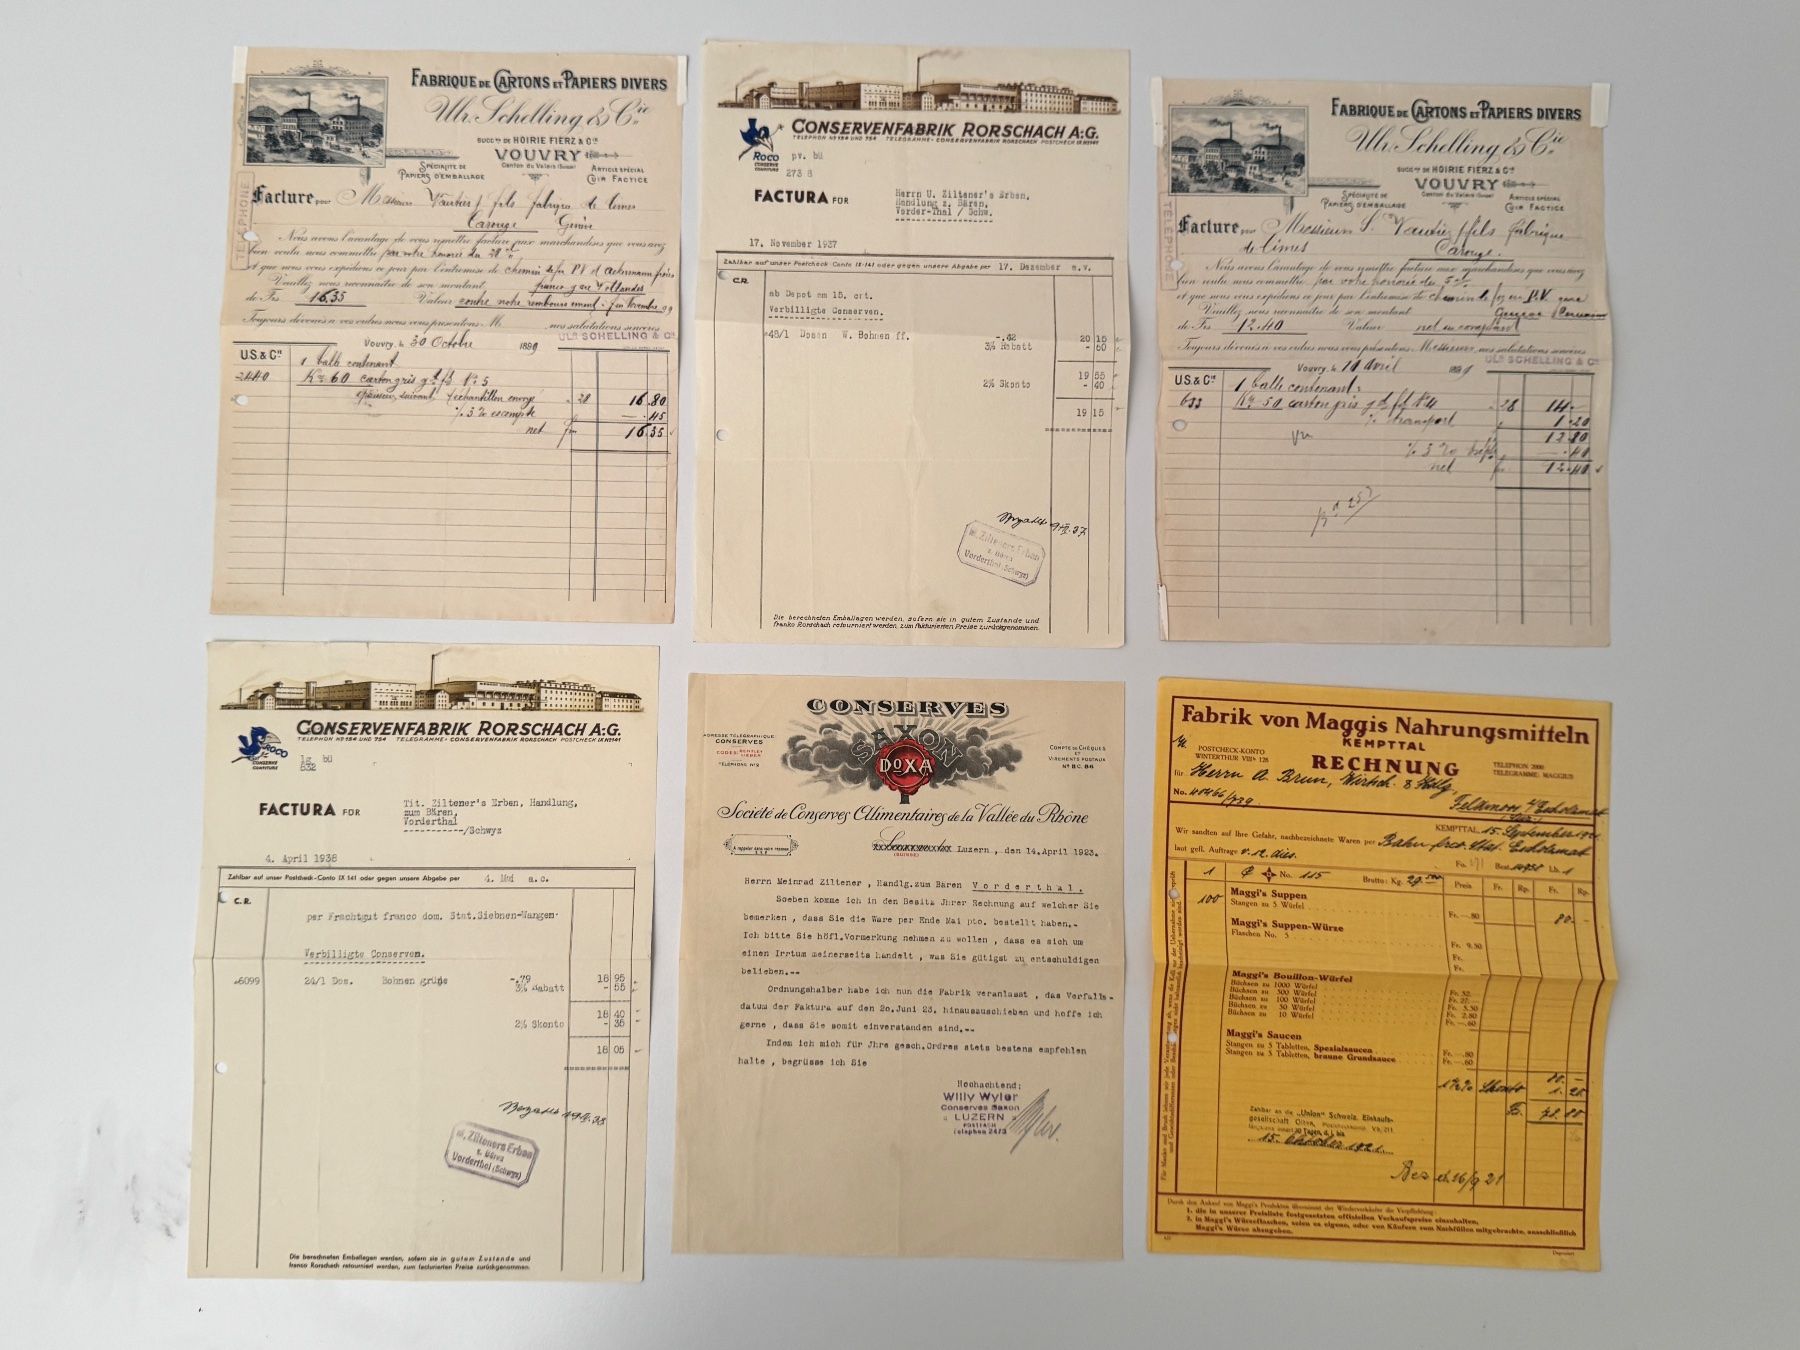 FABRIQUE DE CARTONS ET PAPIERS DIVERS
Ulr. Schelling & Cie
SUCCrs DE HOIRIE FIERZ & Cie
VOUVRY
Canton du Valais (Suisse)
SPÉCIALITÉ DE
PAPIERS D'EMBALLAGE
ARTICLE SPÉCIAL
CUIR FACTICE
TELEPHONE
Facture pour Messieurs Vautier & fils fabrique de limes
Carouge Genève
Nous avons l'avantage de vous remettre facture aux marchandises que vous avez
bien voulu nous commettre par votre honorée du 28 ct
et que nous vous expédions ce jour par l'entremise de chemin de fer P.V.
Veuillez nous reconnaître de son montant,
de Frs 16.35 Valeur contre notre remboursement
Toujours dévoués à vos ordres nous vous présentons M nos salutations sincères
ULR SCHELLING & CIE
Vouvry, le 30 Octobre 1899
U.S. & Cie
1 balle contenant
2440 Ko 60 carton gris No 5
28 16.80
% 3 % escompte —.45
net 16.35
CONSERVENFABRIK RORSCHACH A:G.
TELEPHON No 154 UND 754 TELEGRAMME: CONSERVENFABRIK RORSCHACH POSTCHECK IX No 141
ROCO
CONSERVE
CONFITURE
pv. bü
273 8
FACTURA FÜR
Herrn U. Ziltener's Erben,
Handlung z. Bären,
Vorder-Thal / Schw.
17. November 1937
Zahlbar auf unser Postcheck-Conto IX 141 oder gegen unsere Abgabe per 17. Dezember a.v.
C.R.
ab Depot am 15. crt.
Verbilligte Conserven.
48/1 Dosen W. Bohnen ff. -.42 20 15
3% Rabatt - 60
19 55
2% Skonto - 40
19 15
Zilteners Erben
z. Bären
Vorderthal (Schwyz)
Die berechneten Emballagen werden, sofern sie in gutem Zustande und
franko Rorschach retourniert werden, zum fakturierten Preise zurückgenommen.
FABRIQUE DE CARTONS ET PAPIERS DIVERS
Ulr. Schelling & Cie
SUCCrs DE HOIRIE FIERZ & Cie
VOUVRY
Canton du Valais (Suisse)
SPÉCIALITÉ DE
PAPIERS D'EMBALLAGE
ARTICLE SPÉCIAL
CUIR FACTICE
TELEPHONE
Facture pour Messieurs Vautier & fils fabrique
de limes Carouge.
Nous avons l'avantage de vous remettre facture aux marchandises que vous avez
bien voulu nous commettre par votre honorée du 5 ct
et que nous vous expédions ce jour par l'entremise de chemin de fer en P.V. gare
Veuillez nous reconnaître de son montant
de Frs 12.40 Valeur net au comptant
Toujours dévoués à vos ordres nous vous présentons Messieurs, nos salutations sincères
ULR SCHELLING & CIE
Vouvry, le 10 avril 1899
U.S. & Cie
1 balle contenant:
633 Ko 50 carton gris No 4 28 14.-
% transport 1.20
12.80
% 3 % —.40
net 12.40
CONSERVENFABRIK RORSCHACH A:G.
TELEPHON No 154 UND 754 TELEGRAMME: CONSERVENFABRIK RORSCHACH POSTCHECK IX No 141
ROCO
CONSERVE
CONFITURE
lg bü
532
FACTURA FÜR
Tit. Ziltener's Erben, Handlung,
zum Bären,
Vorderthal
/Schwyz
4. April 1938
Zahlbar auf unser Postcheck-Conto IX 141 oder gegen unsere Abgabe per 4. Mai a.c.
C.R.
per Frachtgut franco dom. Stat. Siebnen-Wangen.
Verbilligte Conserven.
6099 24/1 Dos. Bohnen grüne -.79 18 95
3% Rabatt - 55
18 40
2% Skonto - 35
18 05
Zilteners Erben
z. Bären
Vorderthal (Schwyz)
Die berechneten Emballagen werden, sofern sie in gutem Zustande und
franko Rorschach retourniert werden, zum fakturierten Preise zurückgenommen.
CONSERVES
SAXON
DOXA
ADRESSE TÉLÉGRAPHIQUE
CONSERVES
CODES: BENTLEY
LIEBER
TÉLÉPHONE No 2
COMPTE DE CHÈQUES
ET
VIREMENTS POSTAUX
No IIC. 86
Société de Conserves Alimentaires de la Vallée du Rhône
A rappeler dans votre réponse
(SUISSE)
Luzern, den 14.April 1923.
Herrn Meinrad Ziltener , Handlg.zum Bären Vorderthal.
Soeben komme ich in den Besitz Jhrer Rechnung auf welcher Sie
bemerken , dass Sie die Ware per Ende Mai pto. bestellt haben.-
Ich bitte Sie höfl.Vormerkung nehmen zu wollen , dass es sich um
einen Irrtum meinerseits handelt , was Sie gütigst zu entschuldigen
belieben.--
Ordnungshalber habe ich nun die Fabrik veranlasst , das Verfalls-
datum der Faktura auf den 2o.Juni 23. hinauszuschieben und hoffe ich
gerne , dass Sie somit einverstanden sind.--
Indem ich mich für Jhre gesch.Ordres stets bestens empfohlen
halte , begrüsse ich Sie
Hochachtend:
Willy Wyler
Conserves Saxon
LUZERN
POSTFACH
Telephon 2473
Fabrik von Maggis Nahrungsmitteln
KEMPTTAL
POSTCHECK-KONTO
WINTERTHUR VIIIb 128
RECHNUNG
TELEPHON 2000
TELEGRAMME: MAGGIUS
für Herrn A. Brun, Wirtsch. & Hdlg.
No. 40466/739
KEMPTTAL, 15. September 1921
Wir sandten auf Ihre Gefahr, nachbezeichnete Waren per Bahn
laut gefl. Auftrage v. 12. dies.
1 No. 115 Brutto: Kg. 29.500 Preis Fr. Rp. Fr. Rp.
100 Maggi's Suppen
Stangen zu 5 Würfel Fr. —.80 80.-
Maggi's Suppen-Würze
Flaschen No. 5 Fr. 9.50
Fr.
Fr.
Maggi's Bouillon-Würfel
Büchsen zu 1000 Würfel Fr. 52.
Büchsen zu 500 Würfel Fr. 27.
Büchsen zu 100 Würfel Fr. 5.50
Büchsen zu 50 Würfel Fr. 2.80
Büchsen zu 10 Würfel Fr. —.60
Maggi's Saucen
Stangen zu 5 Tabletten, Spezialsaucen Fr. —.80
Stangen zu 5 Tabletten, braune Grundsauce Fr. —.60
80.-
1½% Skonto 1.20
Fr. 78.80
Zahlbar an die „Union" Schweiz. Einkaufs-
gesellschaft Olten, Postcheckkonto Vb 211
15. Oktober 1921
Durch den Ankauf von Maggi's Produkten übernimmt der Wiederverkäufer die Verpflichtung:
1. die in unserer Preisliste festgesetzten offiziellen Verkaufspreise einzuhalten,
2. in Maggi's Würzeflaschen, seien es eigene, oder von Käufern zum Nachfüllen mitgebrachte, ausschließlich
Maggi's Würze abzugeben.
Deponiert